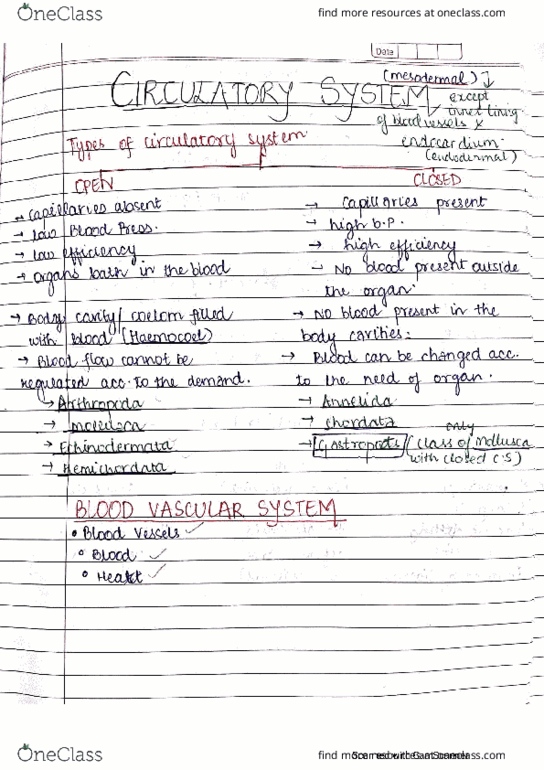 OneClass find more resources at oneclass.com
Date
(mesodermal)
CIRCULATORY SYSTEM except
inner lining
of blood vessels &
endocardium
(endodermal)
Types of circulatory system
OPEN CLOSED
→ Capillaries absent → Capillaries present
→ low Blood Press. → high b.p.
→ low efficiency → high efficiency
→ organs bath in the blood → No blood present outside
the organ.
→ Body cavity/coelom filled → No blood present in the
with blood (Haemocoel) body cavities.
→ Blood flow cannot be → Blood can be changed acc.
regulated acc. to the demand. to the need of organ.
→ Arthropoda → Annelida
→ Mollusca → chordata
→ Echinodermata → Gastropods (only class of Mollusca
→ Hemichordata with closed C.S)
BLOOD VASCULAR SYSTEM
• Blood Vessels ✓
• Blood ✓
• Heart ✓
OneClass find more resources at oneclass.com